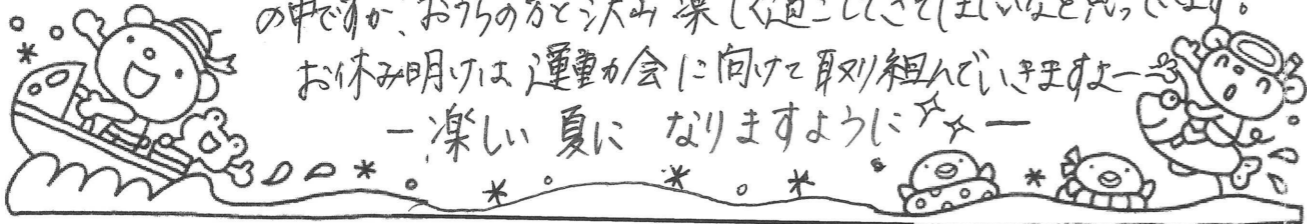 の中ですが、おうちの方と沢山楽しく過ごしてきてほしいなと思っています。
お休み明けは運動会に向けて取り組んでいきますよー
ー楽しい夏に なりますようにー